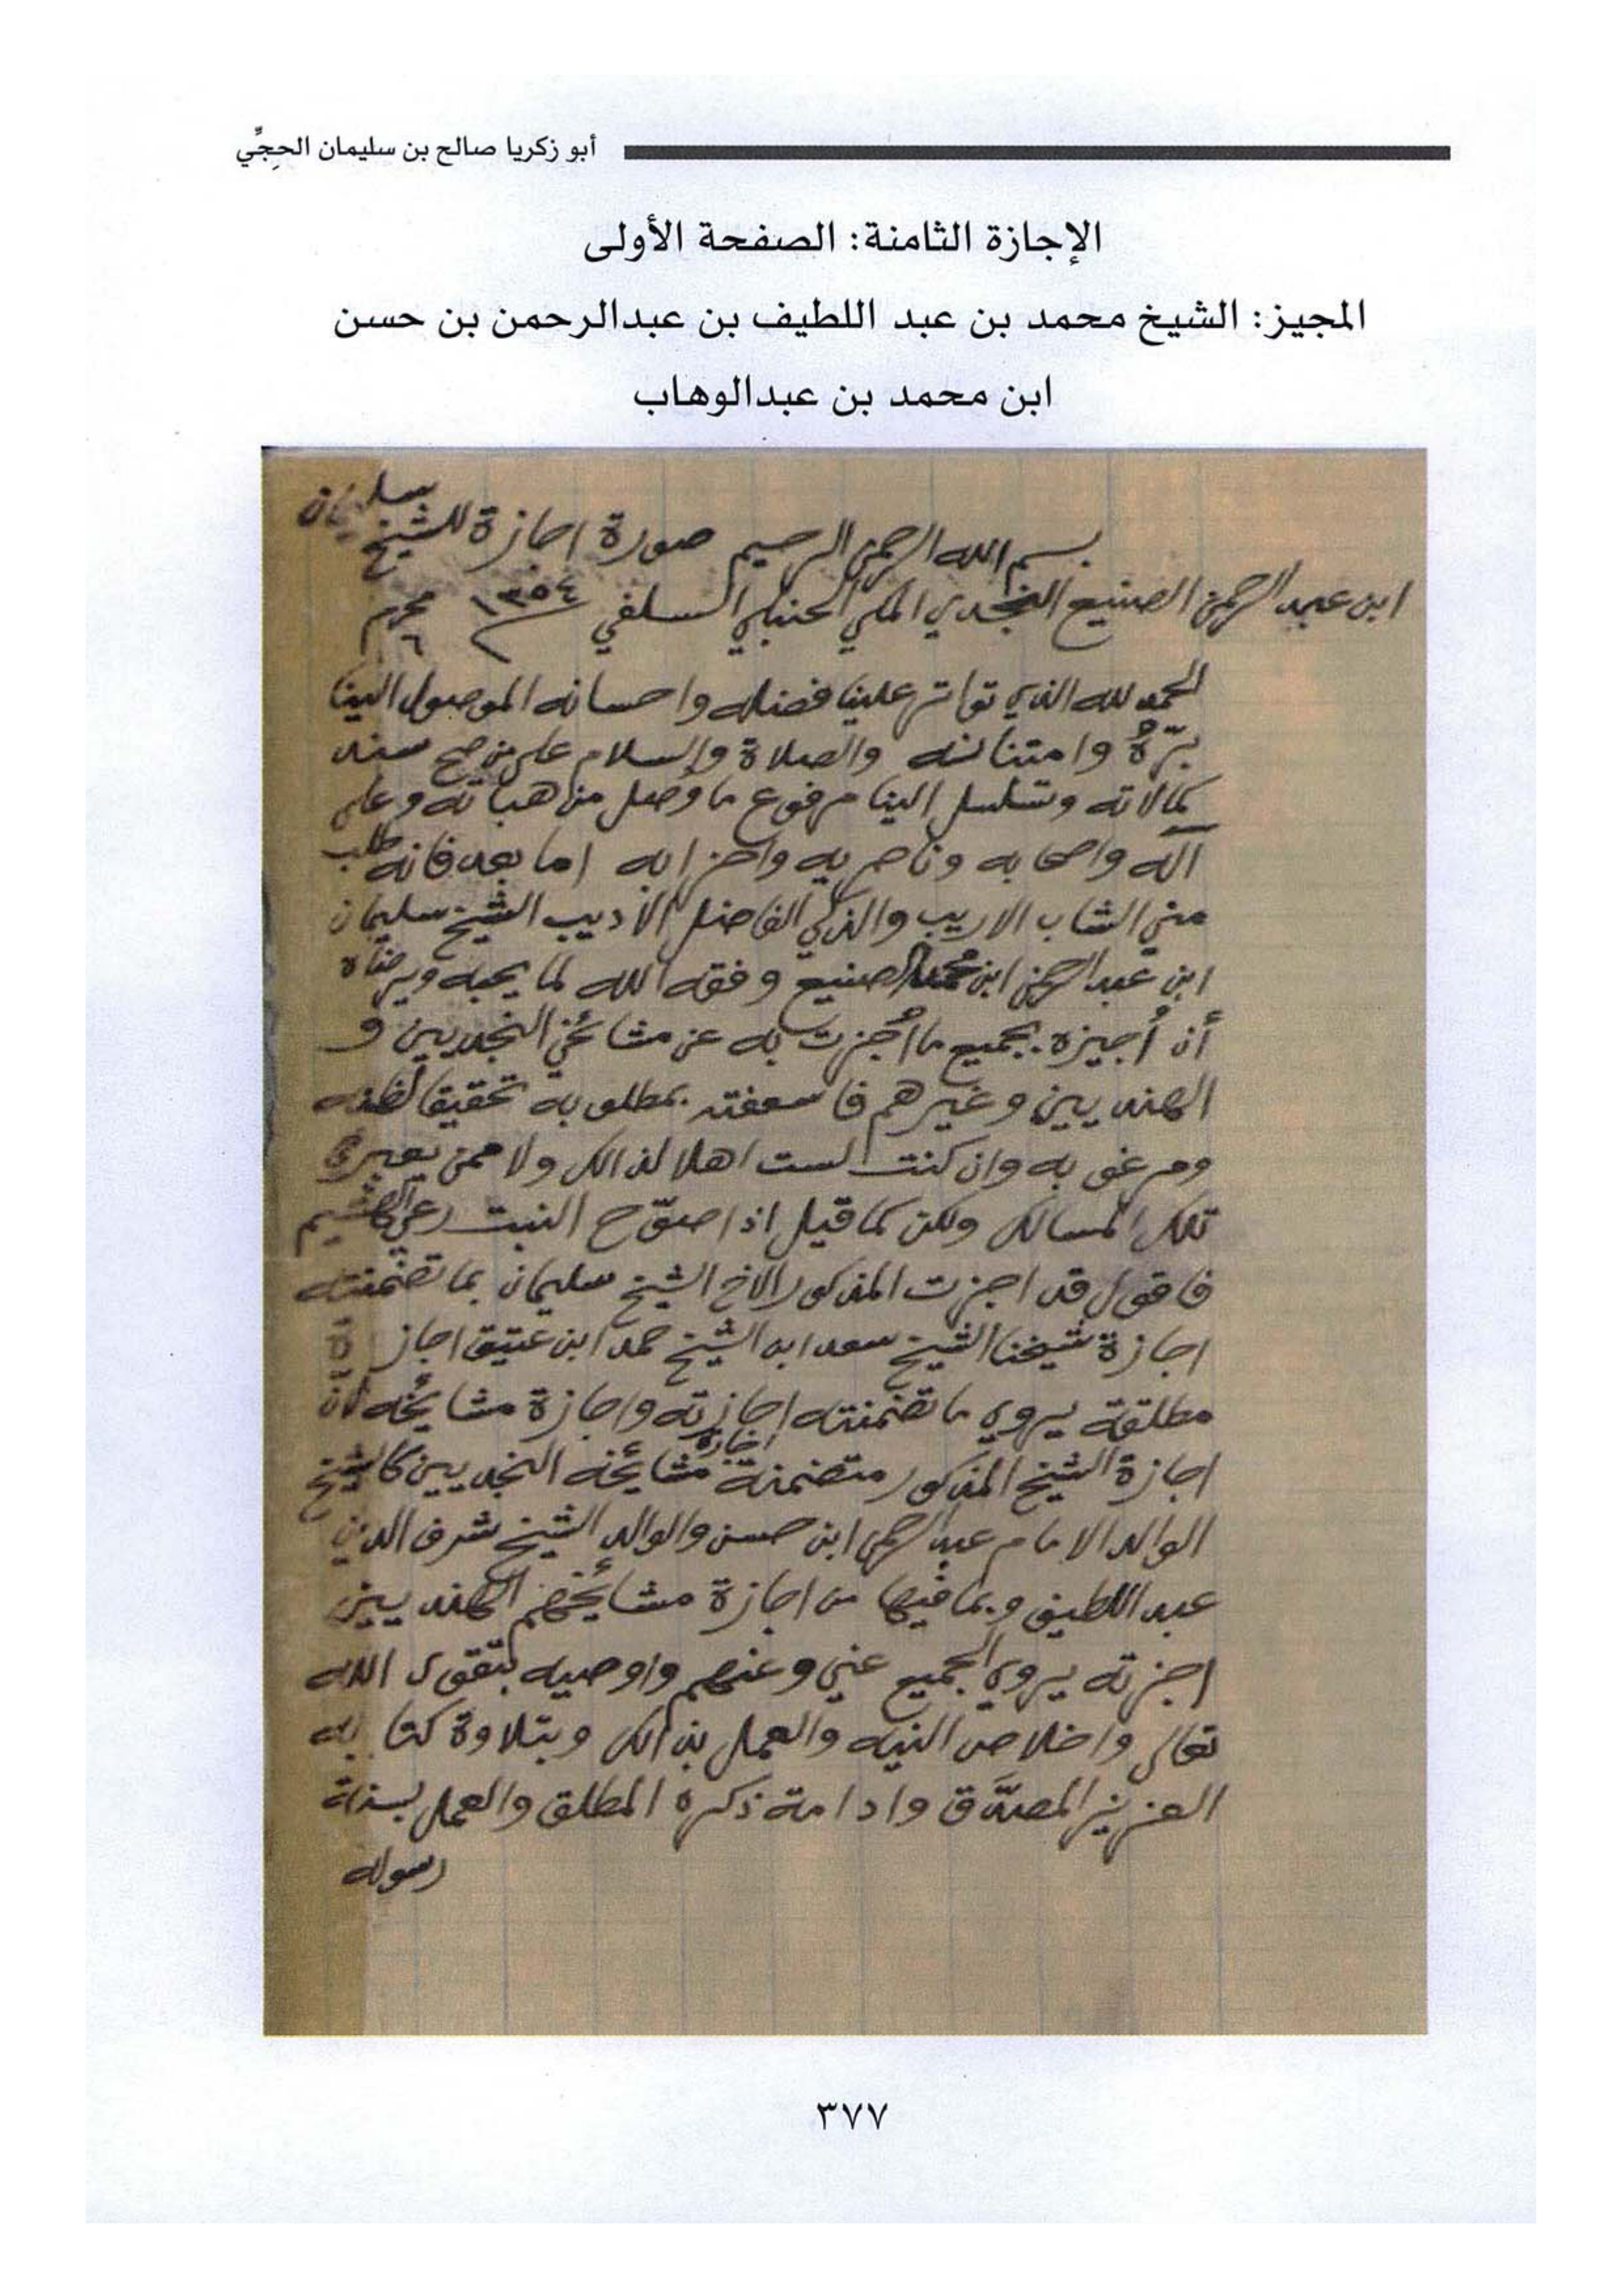 أبو زكريا صالح بن سليمان الحِجِّي
الإجازة الثامنة: الصفحة الأولى
المجيز: الشيخ محمد بن عبد اللطيف بن عبدالرحمن بن حسن
ابن محمد بن عبدالوهاب
بسم الله الرحمن الرحيم صورة اجازة للشيخ سليمان
ابن عبد الرحمن الصنيع النجدي المكي الحنبلي السلفي ١٣٥٤ محرم ٦
الحمد لله الذي تواتر علينا فضله واحسانه الموصول الينا
برّهُ وامتنانه والصلاة والسلام على من صح سند
كمالاته وتسلسل الينا مرفوع ما وُصل من هباته وعلى
آله واصحابه وناصريه واحزابه اما بعد فانه طلب
مني الشاب الاريب والذكي الفاضل الأديب الشيخ سليمان
ابن عبد الرحمن ابن محمد الصنيع وفقه الله لما يحبه ويرضاه
أن أُجيزه بجميع ما أُجزت به عن مشائخي النجديين و
الهنديين وغيرهم فاسعفته بمطلوبه تحقيقا لظنه
ومرغوبه وان كنت لست اهلا لذالك ولا ممن يعبر في
تلك المسالك ولكن كما قيل اذا صوّح النبت رعي الهشيم
فاقول قد اجزت المذكور الاخ الشيخ سليمان بما تضمنته
اجازة شيخنا الشيخ سعد ابن الشيخ حمد ابن عتيق اجازة
مطلقة يروي ما تضمنته اجازته واجازة مشائخه لأنّ
اجازة الشيخ المذكور متضمنة اجازة مشائخه النجديين كالشيخ
الوالد الامام عبد الرحمن ابن حسن والوالد الشيخ شرف الدين
عبد اللطيف وبما فيها من اجازة مشائخهم الهنديين
اجزته يروي الجميع عني وعنهم واوصيه بتقوى الله
تعالى واخلاص النيه والعمل بذالك وبتلاوة كتابه
العزيز المصدَّق وادامة ذكره المطلق والعمل بسنة
رسوله
٣٧٧